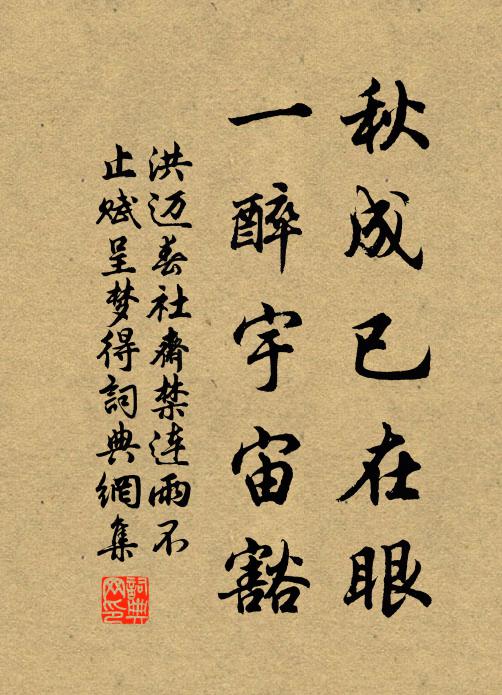 秋成已在眼
一醉宇宙豁
洪迈春社斋禁连雨不
止赋呈梦得詞典網集
詞典网印